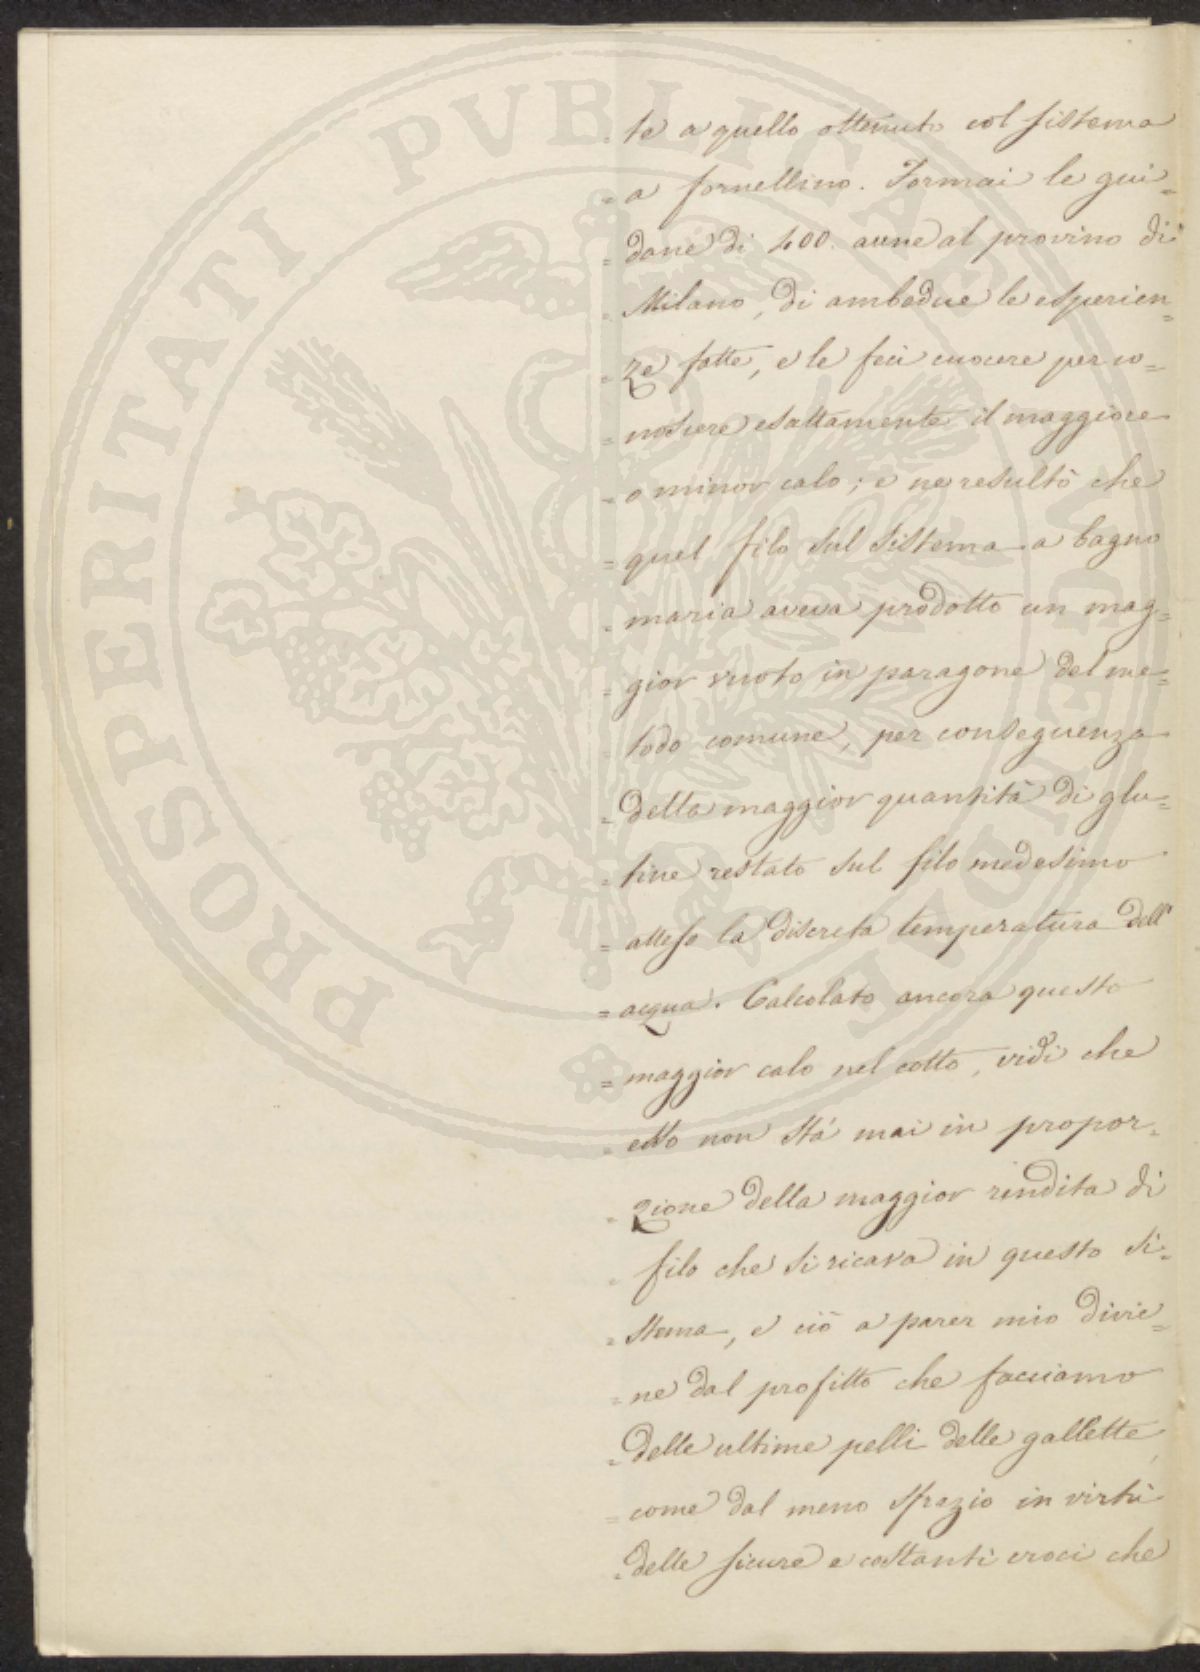 te a quello ottenuto col sistema
= a fornellino. Formai le gui=
= dane di 400. aune al provino di
= Milano, di ambedue le esperien=
= ze fatte, e le feci cuocere per co=
= noscere esattamente il maggiore
= o minor calo; e ne resultò che
= quel filo sul sistema a bagno
= maria aveva prodotto un mag=
= gior vuoto in paragone del me=
= todo comune, per conseguenza
= della maggior quantità di glu=
= tine restato sul filo medesimo
= atteso la discreta temperatura dell'
= acqua. Calcolato ancora questo
= maggior calo nel cotto, vidi che
= esso non stà mai in propor=
= zione della maggior rendita di
= filo che si ricava in questo si=
= stema, e ciò a parer mio divie=
= ne dal profitto che facciamo
= delle ultime pelli delle gallette,
= come dal meno sprazio in virtù
= delle sicure e costanti croci che
PROSPERITATI PVBLICAE AVGENDAE